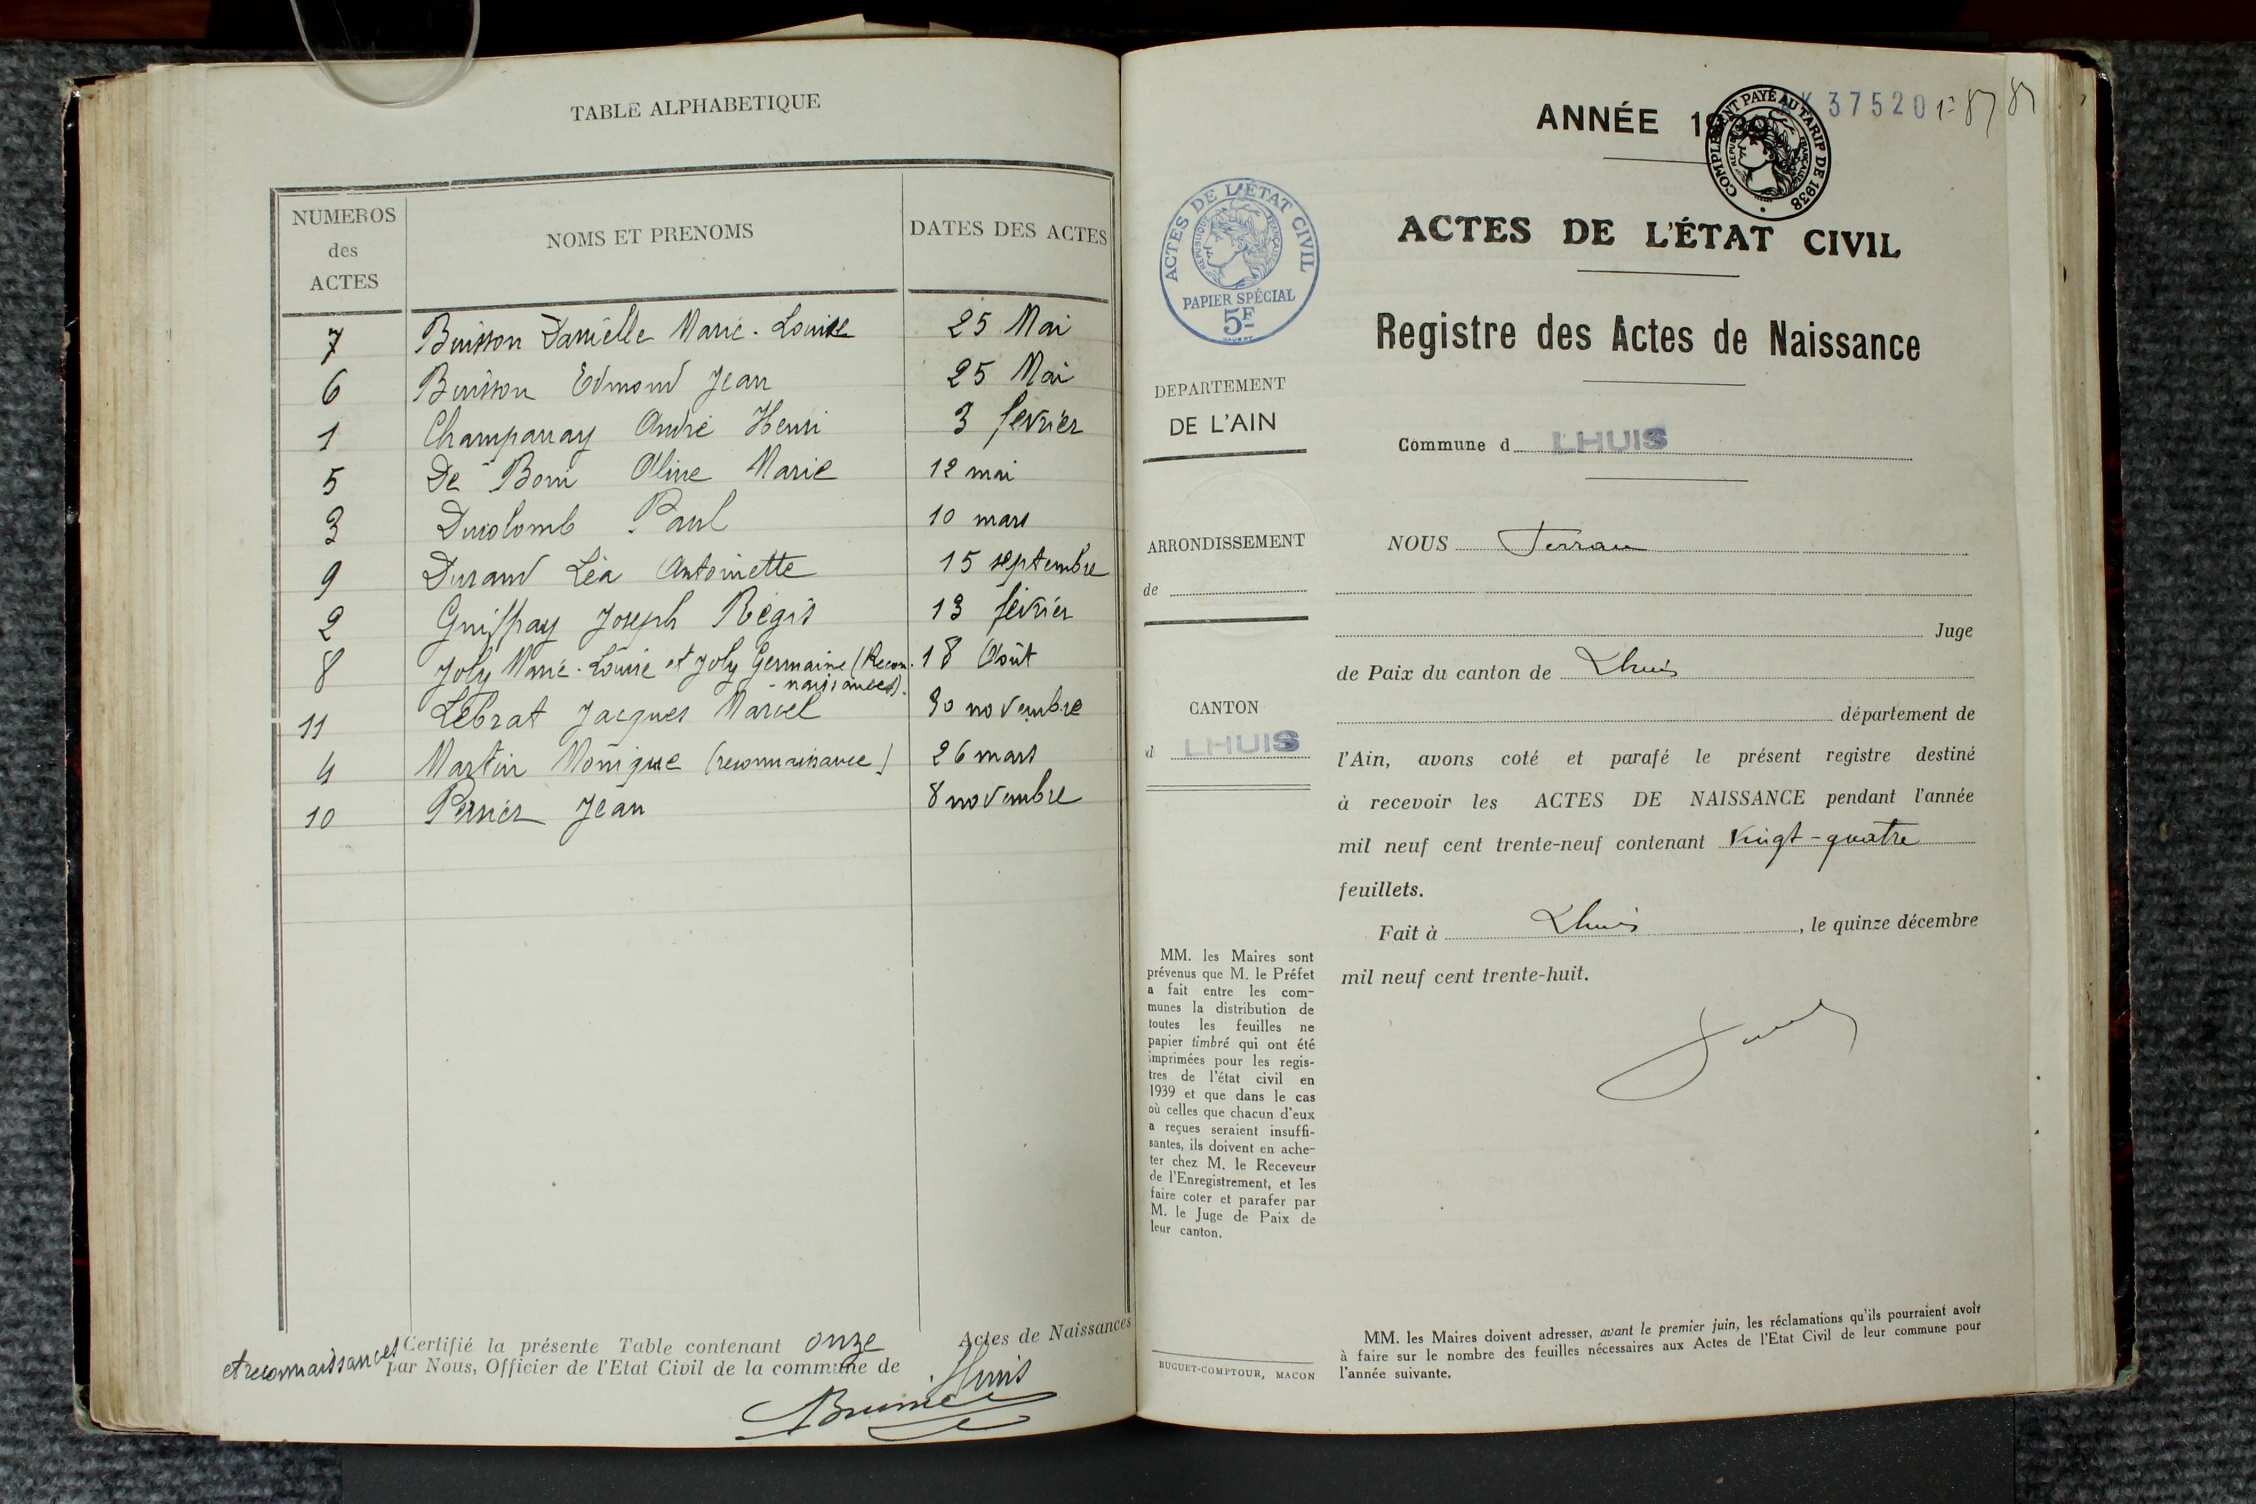 TABLE ALPHABETIQUE
NUMEROS
des
ACTES
NOMS ET PRENOMS
DATES DES ACTES
7 Buisson Danielle Marie-Louise 25 Mai
6 Buisson Edmond Jean 25 Mai
1 Champanay André Henri 3 février
5 De Boni Aline Marie 12 mai
3 Ducolomb Paul 10 mars
9 Durand Léa Antoinette 15 septembre
2 Guiffray Joseph Régis 13 février
8 Joly Marie-Louise et Joly Germaine (Recon- 18 Août
naissances).
11 Lebrat Jacques Marcel 30 novembre
4 Martin Monique (reconnaissance) 26 mars
10 Perrier Jean 8 novembre
Certifié la présente Table contenant onze Actes de Naissances
et reconnaissances par Nous, Officier de l'Etat Civil de la commune de Lhuis
ANNÉE
37520
COMPLEMENT PAYÉ AU TARIF DE 1938
ACTES DE L'ÉTAT CIVIL
REPUBLIQUE FRANÇAISE
PAPIER SPÉCIAL
5F
ACTES DE L'ÉTAT CIVIL
Registre des Actes de Naissance
DEPARTEMENT
DE L'AIN
Commune d LHUIS
ARRONDISSEMENT
de
NOUS
Juge
de Paix du canton de Lhuis
CANTON
d LHUIS
département de
l'Ain, avons coté et parafé le présent registre destiné
à recevoir les ACTES DE NAISSANCE pendant l'année
mil neuf cent trente-neuf contenant vingt-quatre
feuillets.
Fait à Lhuis, le quinze décembre
mil neuf cent trente-huit.
MM. les Maires sont
prévenus que M. le Préfet
a fait entre les com-
munes la distribution de
toutes les feuilles ne
papier timbré qui ont été
imprimées pour les regis-
tres de l'état civil en
1939 et que dans le cas
où celles que chacun d'eux
a reçues seraient insuffi-
santes, ils doivent en ache-
ter chez M. le Receveur
de l'Enregistrement, et les
faire coter et parafer par
M. le Juge de Paix de
leur canton.
BUGUET-COMPTOUR, MACON
MM. les Maires doivent adresser, avant le premier juin, les réclamations qu'ils pourraient avoir
à faire sur le nombre des feuilles nécessaires aux Actes de l'Etat Civil de leur commune pour
l'année suivante.